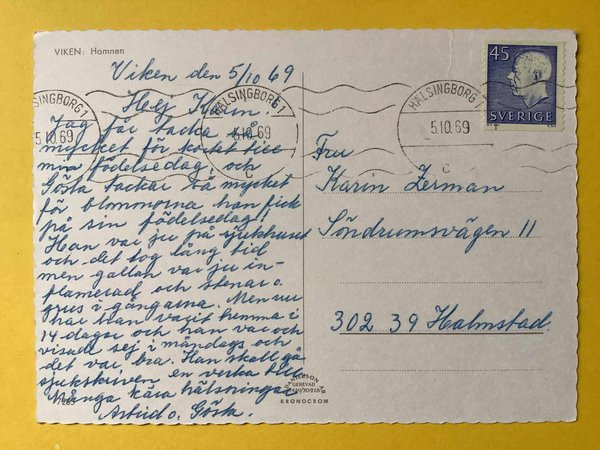 VIKEN: Hamnen
Viken den 5/10 69
Hej Karin!
Jag får tacka så
mycket för kortet till
min födelsedag! och
Gösta tackar så mycket
för blommorna han fick
på sin födelsedag!
Han var ju på sjukhuset
och det tog lång tid
men gallan var ju in-
flamerad och stenar o.
grus i gångarna. Men nu
har han varit hemma i
14 dagar och han var och
visade sej i måndags och
det var bra. Han skall gå
sjukskriven en vecka till
Många kära hälsningar
Astrid o. Gösta.
HÄLSINGBORG 1
5.10.69
C
HÄLSINGBORG 1
5.10.69
C
HÄLSINGBORG 1
5.10.69
C
45
SVERIGE
Fru
Karin Zerman
Söndrumsvägen 11
302 39 Halmstad.
GENEVAD
KRONOCROM